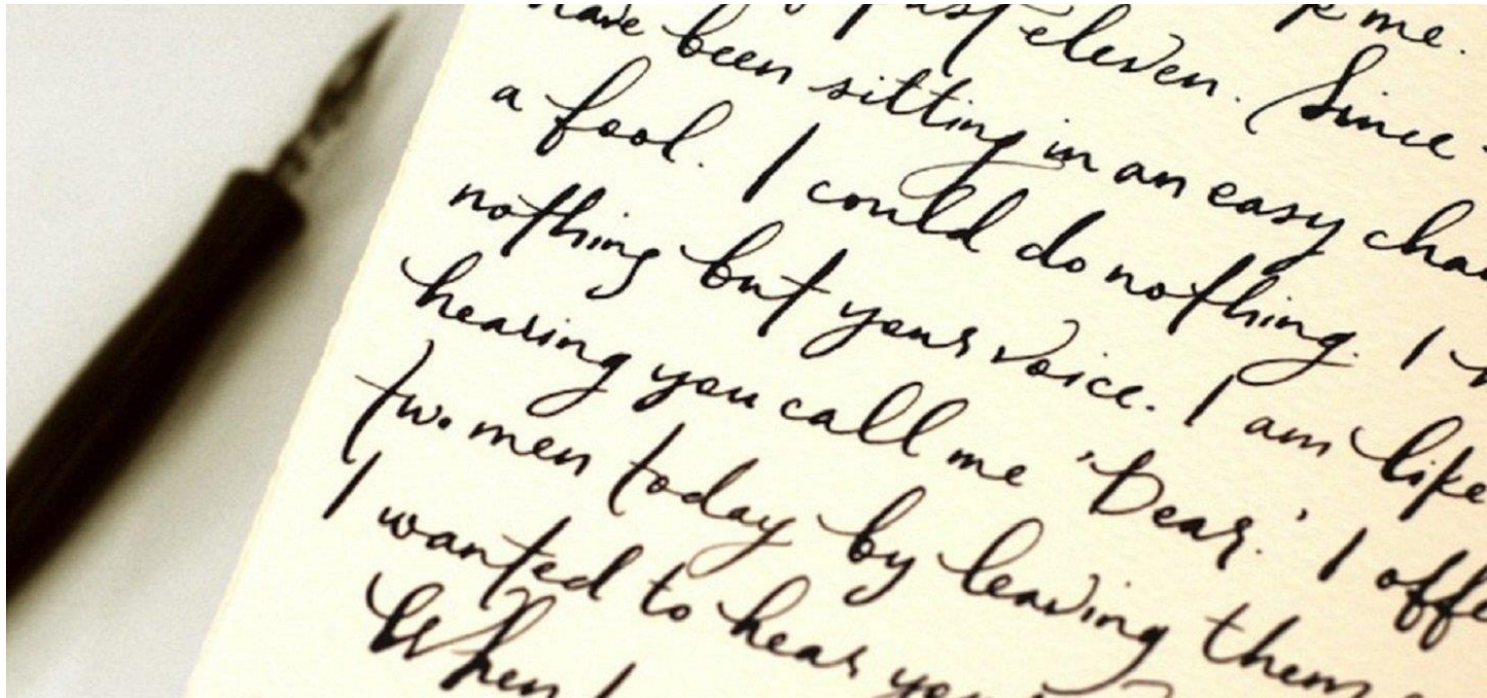 me.
past eleven. Since
have been sitting in an easy
a fool. I could do nothing. I
nothing but your voice. I am like
hearing you call me 'Dear.' I
two men today by leaving them
I wanted to hear
When I